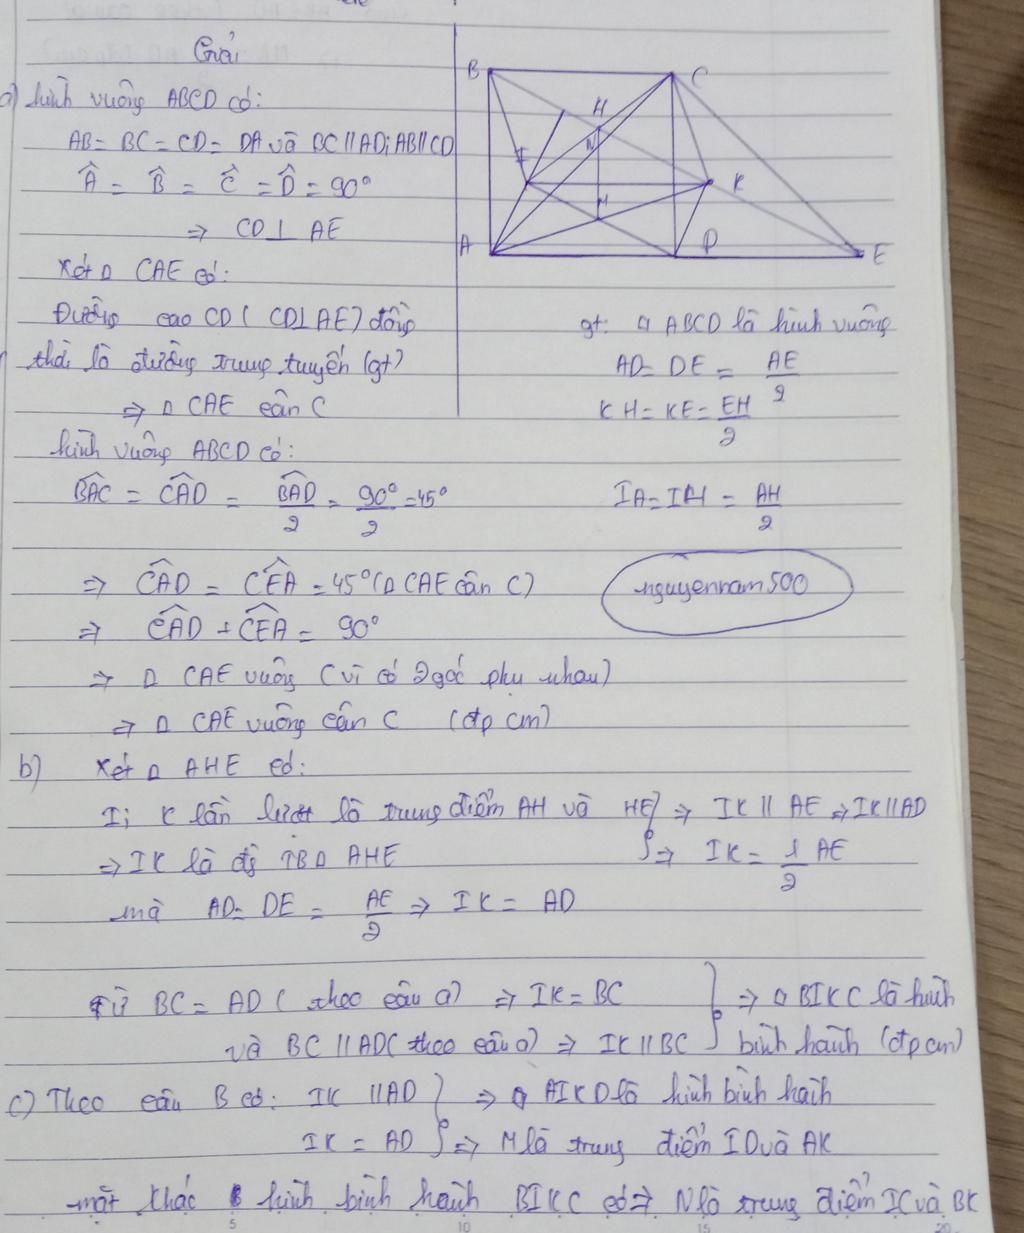 Giải
a) hình vuông ABCD có:
AB = BC = CD = DA và BC // AD; AB // CD
Â = B̂ = Ĉ = D̂ = 90°
⇒ CD ⊥ AE
Xét Δ CAE có:
Đường cao CD ( CD ⊥ AE) đồng
thời là đường trung tuyến (gt)
⇒ Δ CAE cân C
hình vuông ABCD có:
BAC = CAD = BAD/2 = 90°/2 = 45°
⇒ CAD = CEA = 45° (Δ CAE cân C)
⇒ CAD + CEA = 90°
⇒ Δ CAE vuông (vì có 2 góc phụ nhau)
⇒ Δ CAE vuông cân C (đpcm)
B
C
H
N
I
K
M
A
D
E
gt: □ ABCD là hình vuông
AD = DE = AE/2
KH = KE = EH/2
IA = IH = AH/2
nguyennam500
b) Xét Δ AHE có:
I; K lần lượt là trung điểm AH và HE } ⇒ IK // AE ⇒ IK // AD
⇒ IK là đg TB Δ AHE ⇒ IK = 1/2 AE
mà AD = DE = AE/2 ⇒ IK = AD
Từ BC = AD ( theo câu a) ⇒ IK = BC } ⇒ □ BIKC là hình
và BC // AD ( theo câu a) ⇒ IK // BC bình hành (đpcm)
c) Theo câu B có: IK // AD } ⇒ □ AIKD là hình bình hành
IK = AD ⇒ M là trung điểm ID và AK
mặt khác hình bình hành BIKC có ⇒ N là trung điểm IC và BK
5 10 15 20